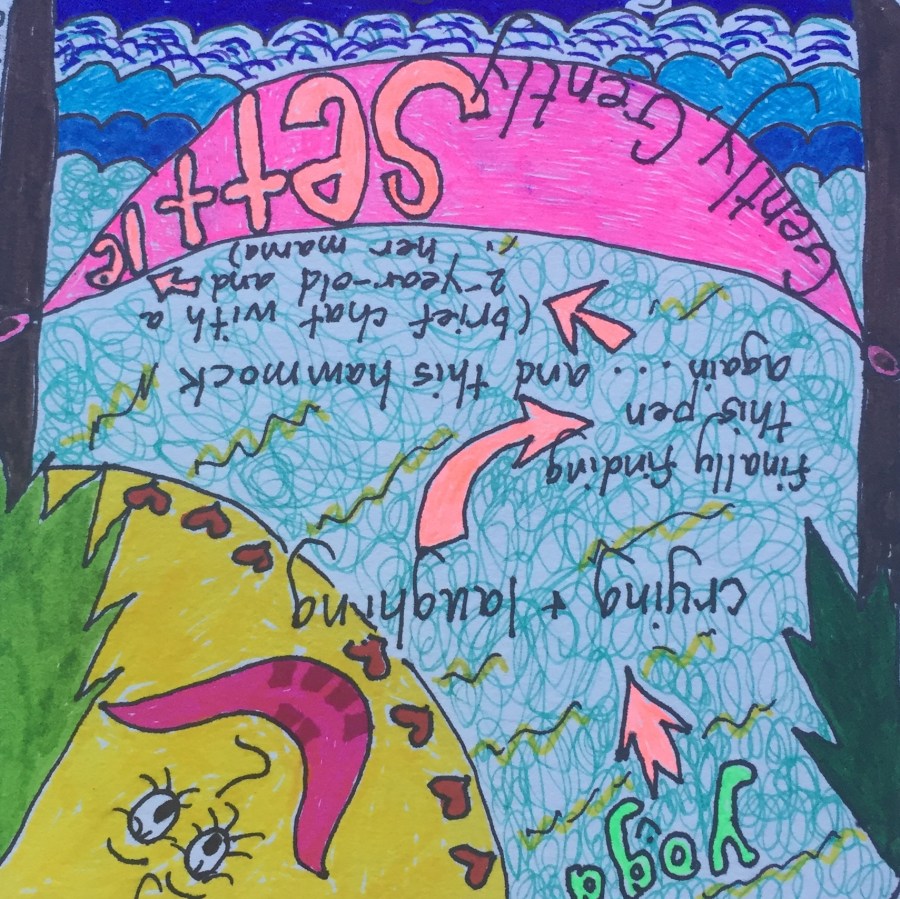 yoga
crying + laughing
finally finding
this pen
again ... and this hammock
(brief chat with a
2-year-old and
her mama)
Gently Gently Settle